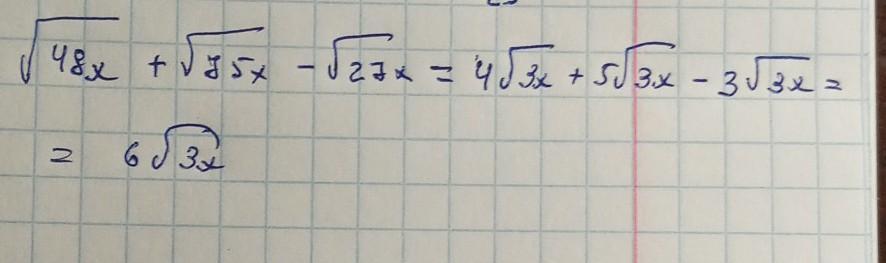 √48x + √75x - √27x = 4√3x + 5√3x - 3√3x =
= 6√3x